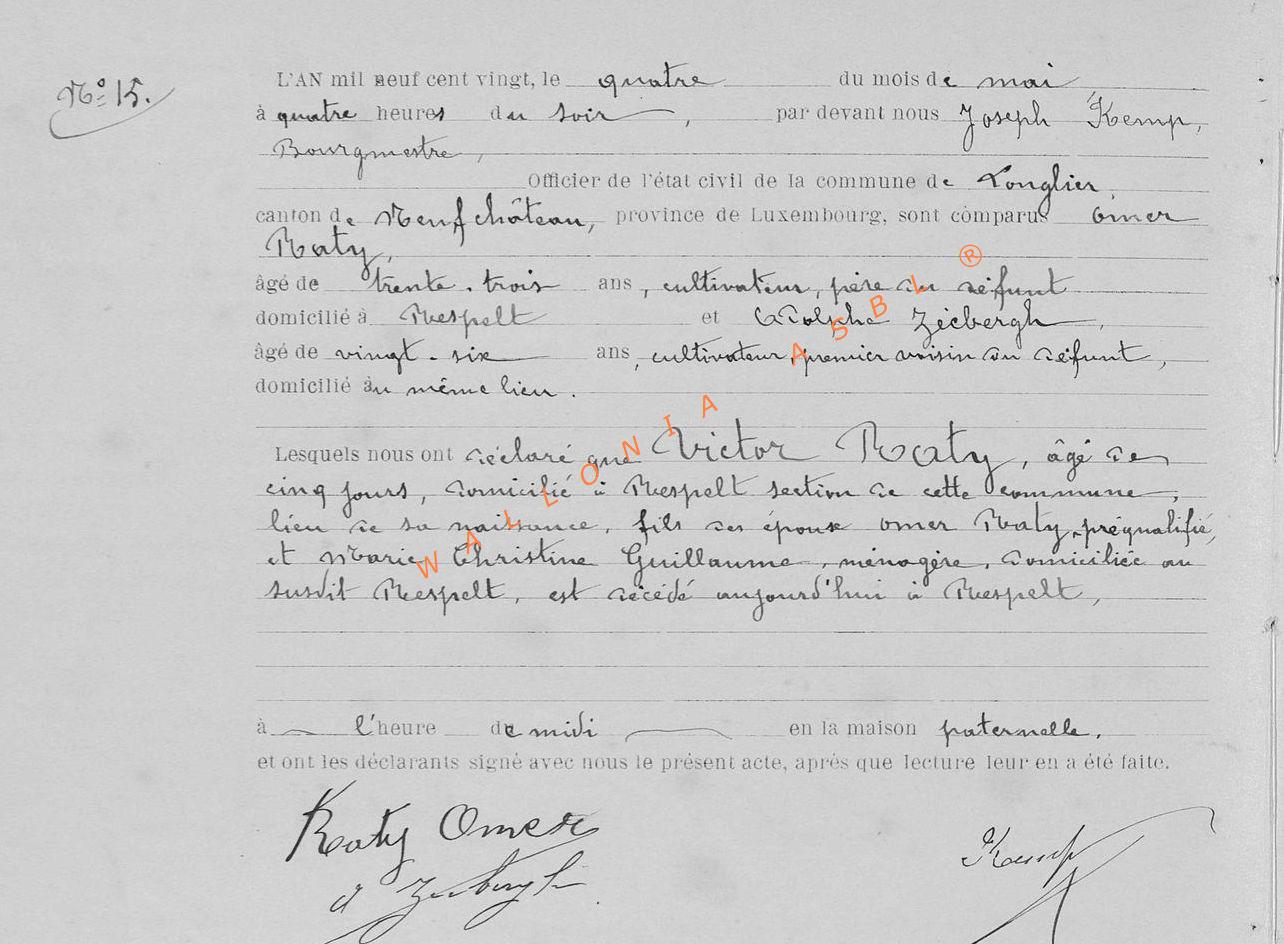 N° 15.
L'AN mil neuf cent vingt, le quatre du mois de mai
à quatre heures du soir, par devant nous Joseph Kemp,
Bourgmestre,
Officier de l'état civil de la commune de Longlier,
canton de Neufchâteau, province de Luxembourg, sont comparus Omer
Raty,
âgé de trente-trois ans, cultivateur, père du défunt
domicilié à Respelt et Adolphe Zecbergh,
âgé de vingt-six ans, cultivateur, premier voisin du défunt,
domicilié au même lieu.
Lesquels nous ont déclaré que Victor Raty, âgé de
cinq jours, domicilié à Respelt section de cette commune,
lieu de sa naissance, fils des époux Omer Raty, préqualifié,
et Marie Christine Guillaume, ménagère, domiciliée au
susdit Respelt, est décédé aujourd'hui à Respelt,
à l'heure de midi en la maison paternelle.
et ont les déclarants signé avec nous le présent acte, après que lecture leur en a été faite.
Raty Omer
Kemp
WALLONIA ASBL ®